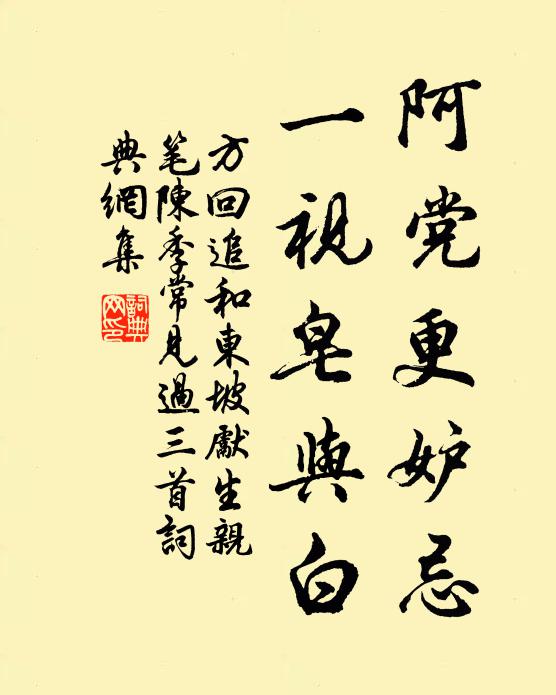 阿党更妒忌
一視皂與白
方回追和東坡獻生親
笔陳季常見過三首詞
典網集
詞典
网印